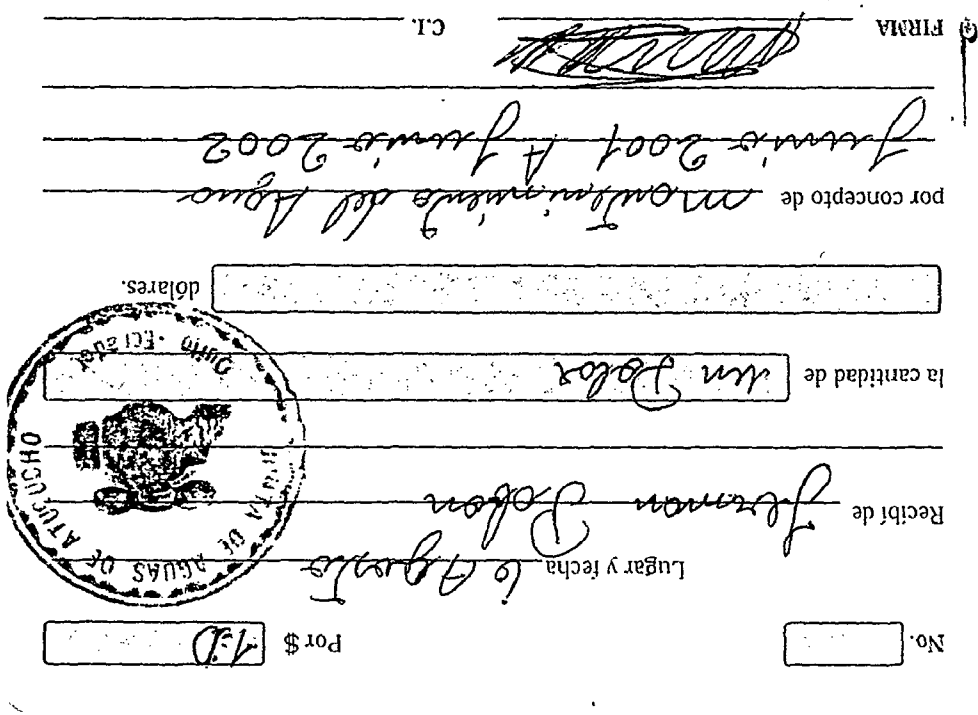 No. Por $ 1.00
Lugar y fecha 6 Agosto
Recibí de German Pabon
la cantidad de un Dolar
dólares.
por concepto de mantenimiento del Agua
Junio 2001 A Junio 2002
FIRMA C.I.
JUNTA DE AGUAS DE ATUCUCHO
Quito - Ecuador